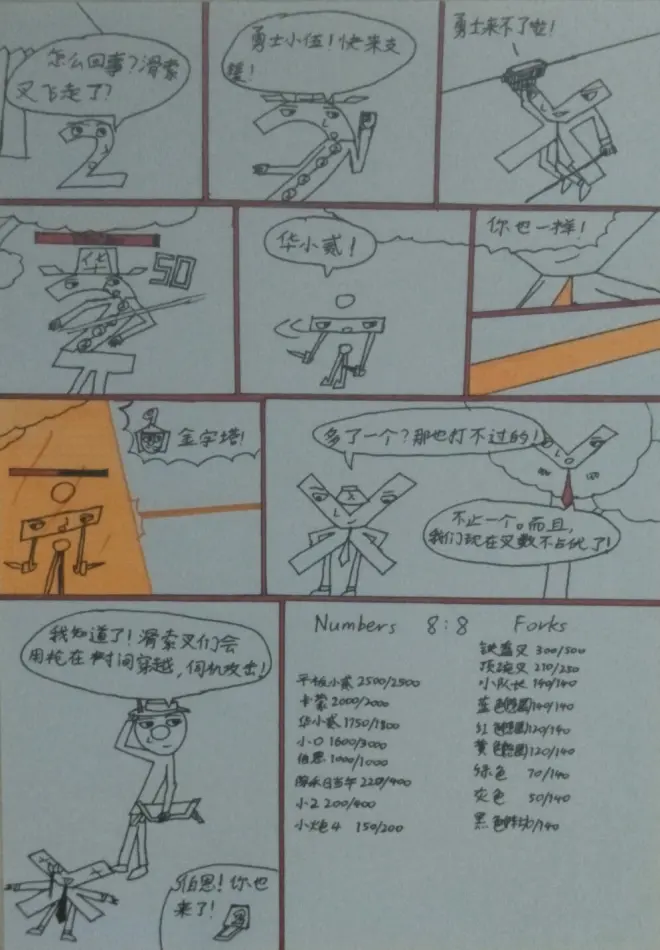 怎么回事?滑索
又飞走了?
勇士小伍!快来支
援!
勇士来不了啦!
华
50
华小贰!
你也一样!
金字塔!
多了一个?那也打不过的!
不止一个。而且,
我们现在叉数不占优了!
我知道了!滑索叉们会
用枪在树间穿越,伺机攻出!
伯恩!你也
来了!
Numbers 8:8 Forks
平板小贰 2500/2500
卡蒙 2000/2000
华小贰 1750/1800
小0 1600/3000
伯恩 1000/1000
220/400
小2 200/400
小炮4 150/200
铁盔叉 300/500
顶碗叉 210/250
小队长 140/140
蓝色 140/140
红色 120/140
黄色 120/140
绿色 70/140
灰色 50/140
黑色 /140